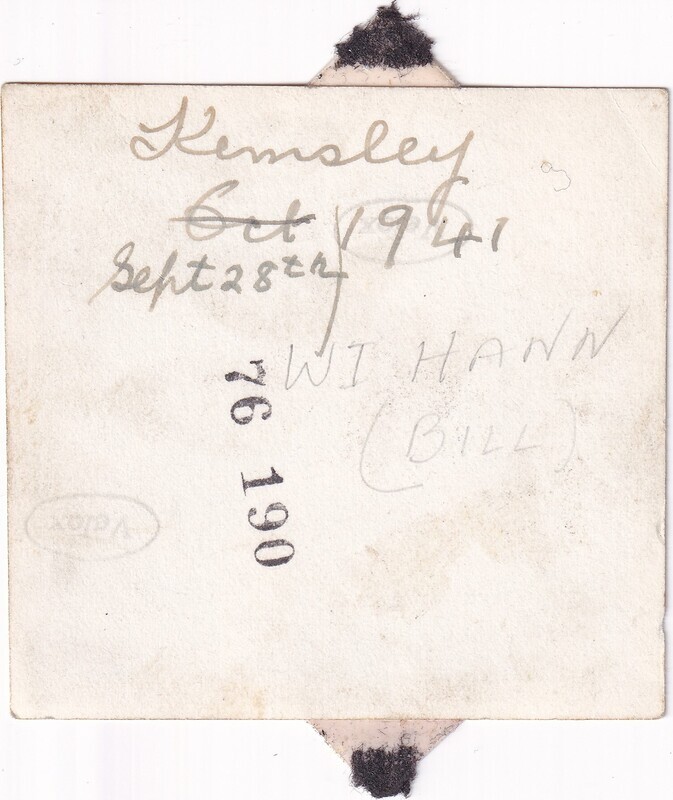 Kemsley
Oct 1941
Sept 28th
WI HANN
(BILL)
76 190
Velox
Velox